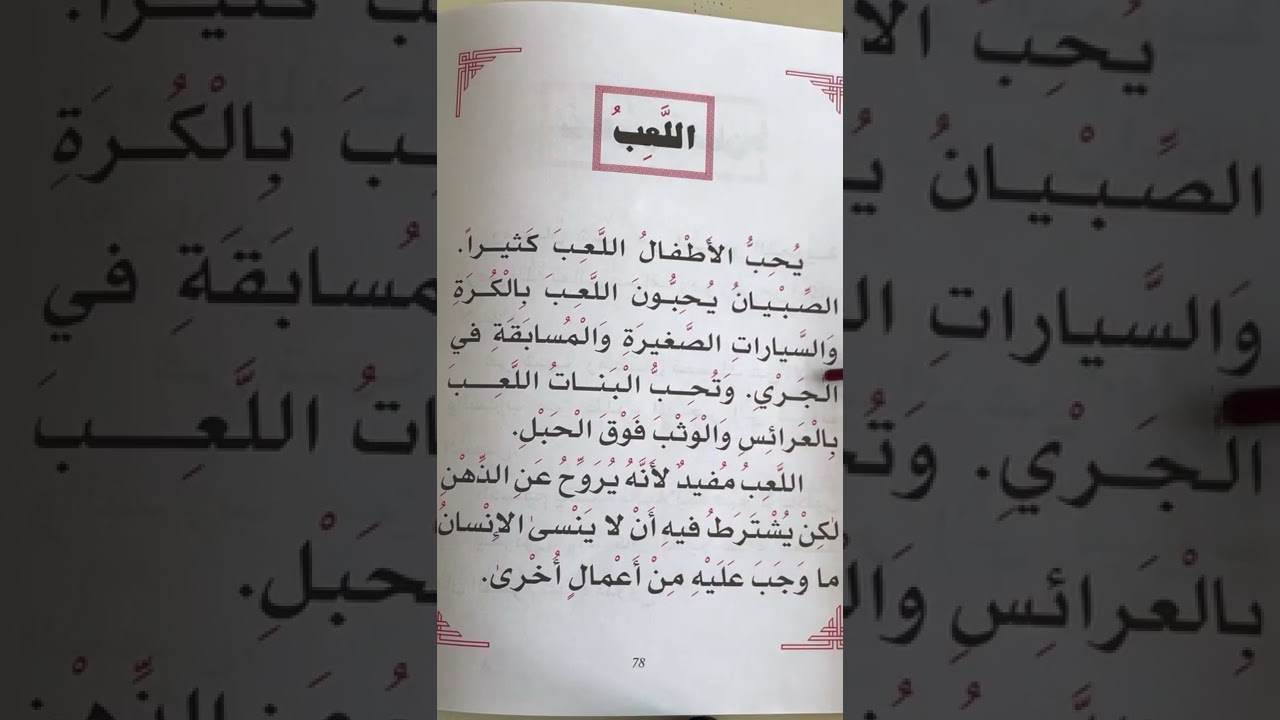 اللَّعِبُ
يُحِبُّ الأَطْفالُ اللَّعِبَ كَثيـراً.
الصِّبْيـانُ يُحِبُّـونَ اللَّعِبَ بِالْكُـرَةِ
وَالسَّيارَاتِ الصَّغيرَةِ وَالْمُسابَقَةِ في
الجَـرْيِ. وَتُحِـبُّ الْبَنـاتُ اللَّعِـــبَ
بِالْعَرائِسِ وَالْوَثْبَ فَوْقَ الْحَبْلِ.
اللَّعِبُ مُفيدٌ لأَنَّهُ يُرَوِّحُ عَنِ الذِّهْنِ
لٰكِنْ يُشْتَرَطُ فيهِ أَنْ لا يَنْسىٰ الإِنْسانُ
ما وَجَبَ عَلَيْهِ مِنْ أَعْمالٍ أُخْرىٰ.
78